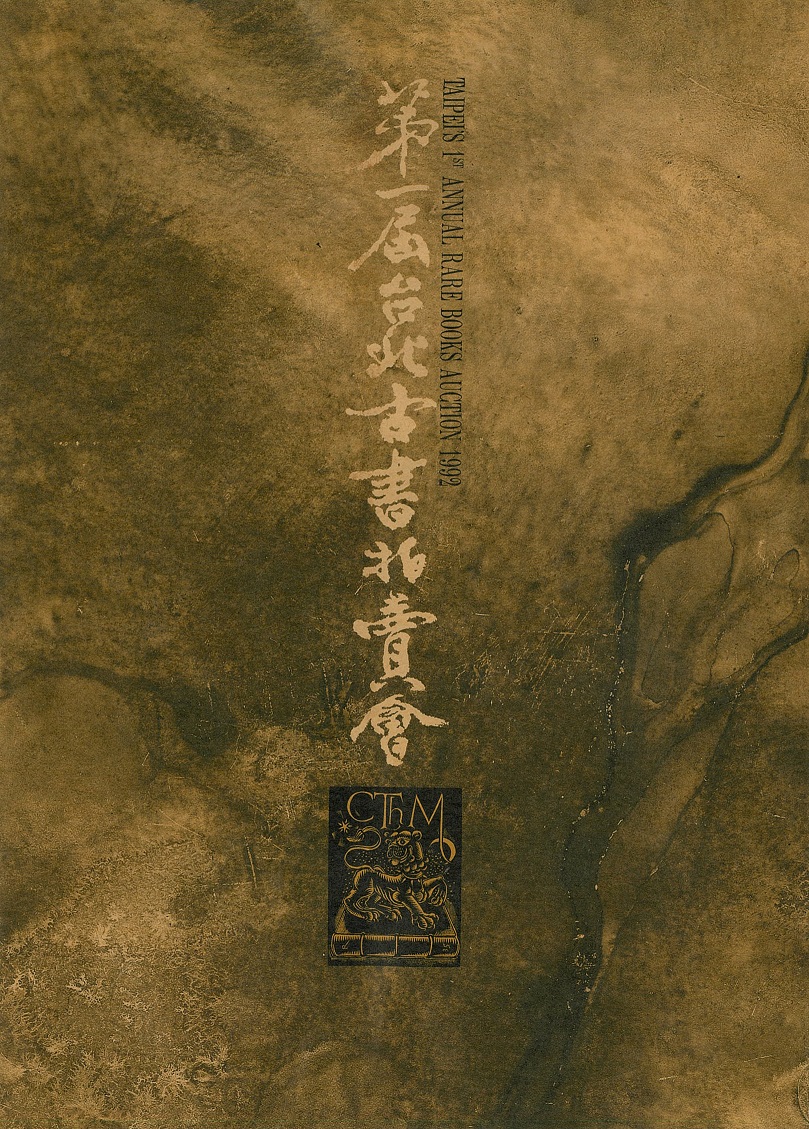 第一屆台北古書拍賣會
TAIPEI'S 1ST ANNUAL RARE BOOKS AUCTION 1992
CThM